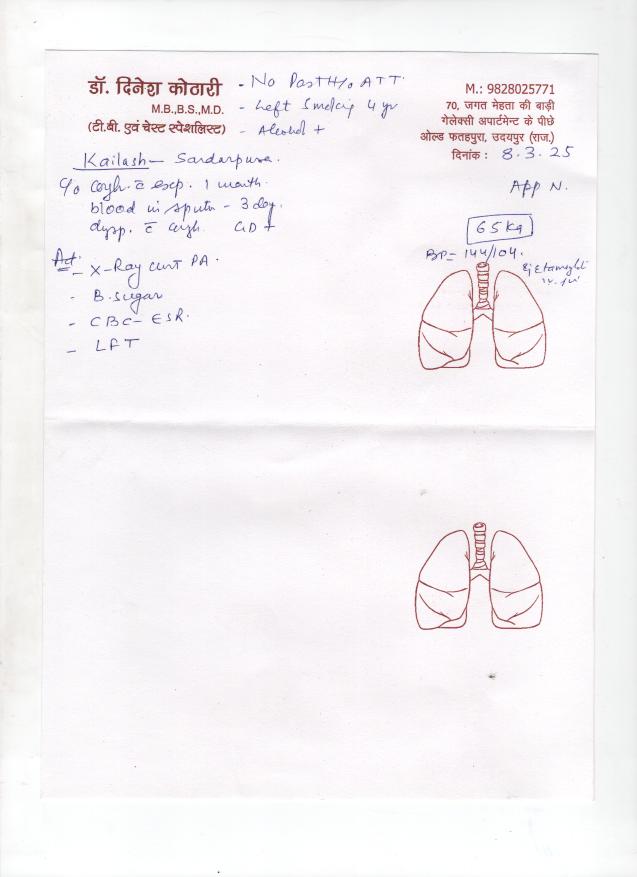 डॉ. दिनेश कोठारी
M.B.,B.S.,M.D.
(टी.बी. एवं चेस्ट स्पेशलिस्ट)
- No Past H/o ATT.
- Left Smoking 4 yr
- Alcohol +
M.: 9828025771
70, जगत मेहता की बाड़ी
गेलेक्सी अपार्टमेन्ट के पीछे
ओल्ड फतहपुरा, उदयपुर (राज.)
दिनांक : 8.3.25
Kailash - Sardarpura.
C/o cough c̄ exp. 1 month.
blood in sputm - 3 day.
dysp. c̄ cough. GD +
App N.
65 kg
BP = 144/104.
Adt.
- X-Ray chest PA.
- B. sugar
- CBC - ESR.
- LFT